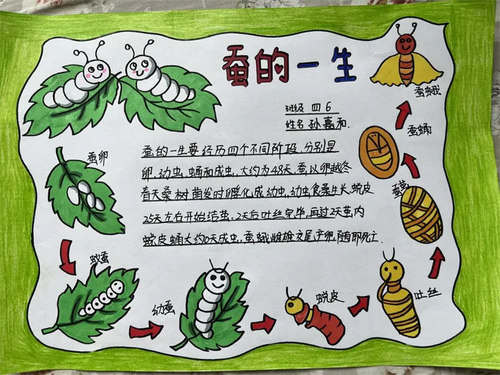 蚕的一生
班级 四6
姓名 孙嘉和
蚕的一生要经历四个不同阶段,分别是
卵,幼虫,蛹和成虫,大约为48天,蚕以卵越冬
春天桑树萌发时孵化成幼虫,幼虫食桑生长,蜕皮
25天左右开始结茧,2天后吐丝完毕,再过2天茧内
蜕皮蛹大约10天成虫,蚕蛾雌雄交尾产卵,随即死亡.
蚕卵
蚁蚕
幼蚕
蜕皮
吐丝
蚕茧
蚕蛹
蚕蛾